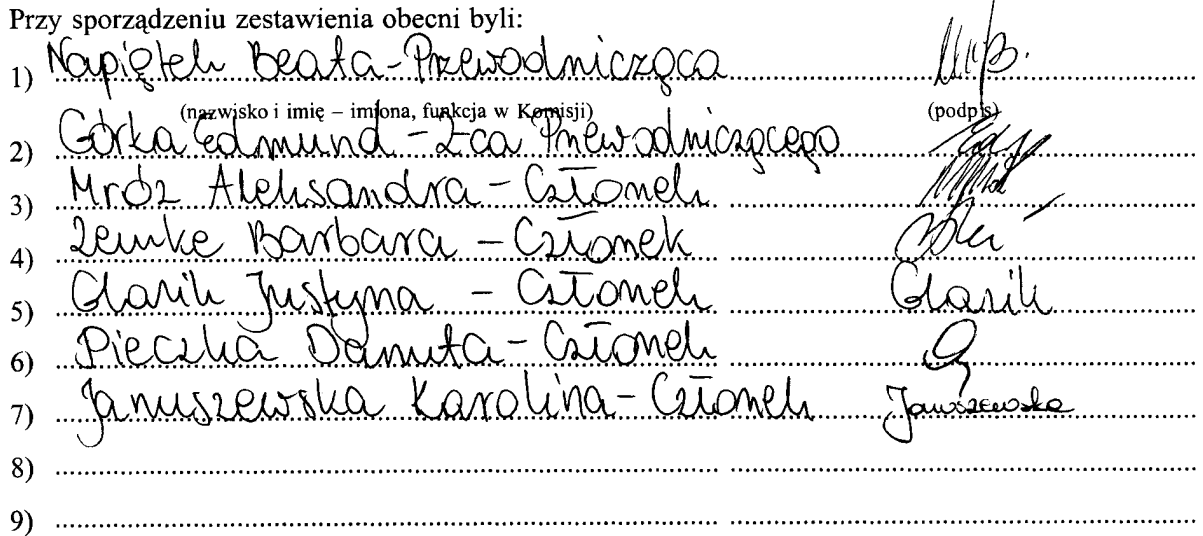 Przy sporządzeniu zestawienia obecni byli:
1) Napiętek Beata - Przewodnicząca
(nazwisko i imię – imiona, funkcja w Komisji) (podpis)
2) Górka Edmund - Z-ca Przewodniczącego
3) Mróz Aleksandra - Członek
4) Zemke Barbara - Członek
5) Glazik Justyna - Członek Glazik
6) Pieczka Danuta - Członek
7) Januszewska Karolina - Członek Januszewska
8)
9)